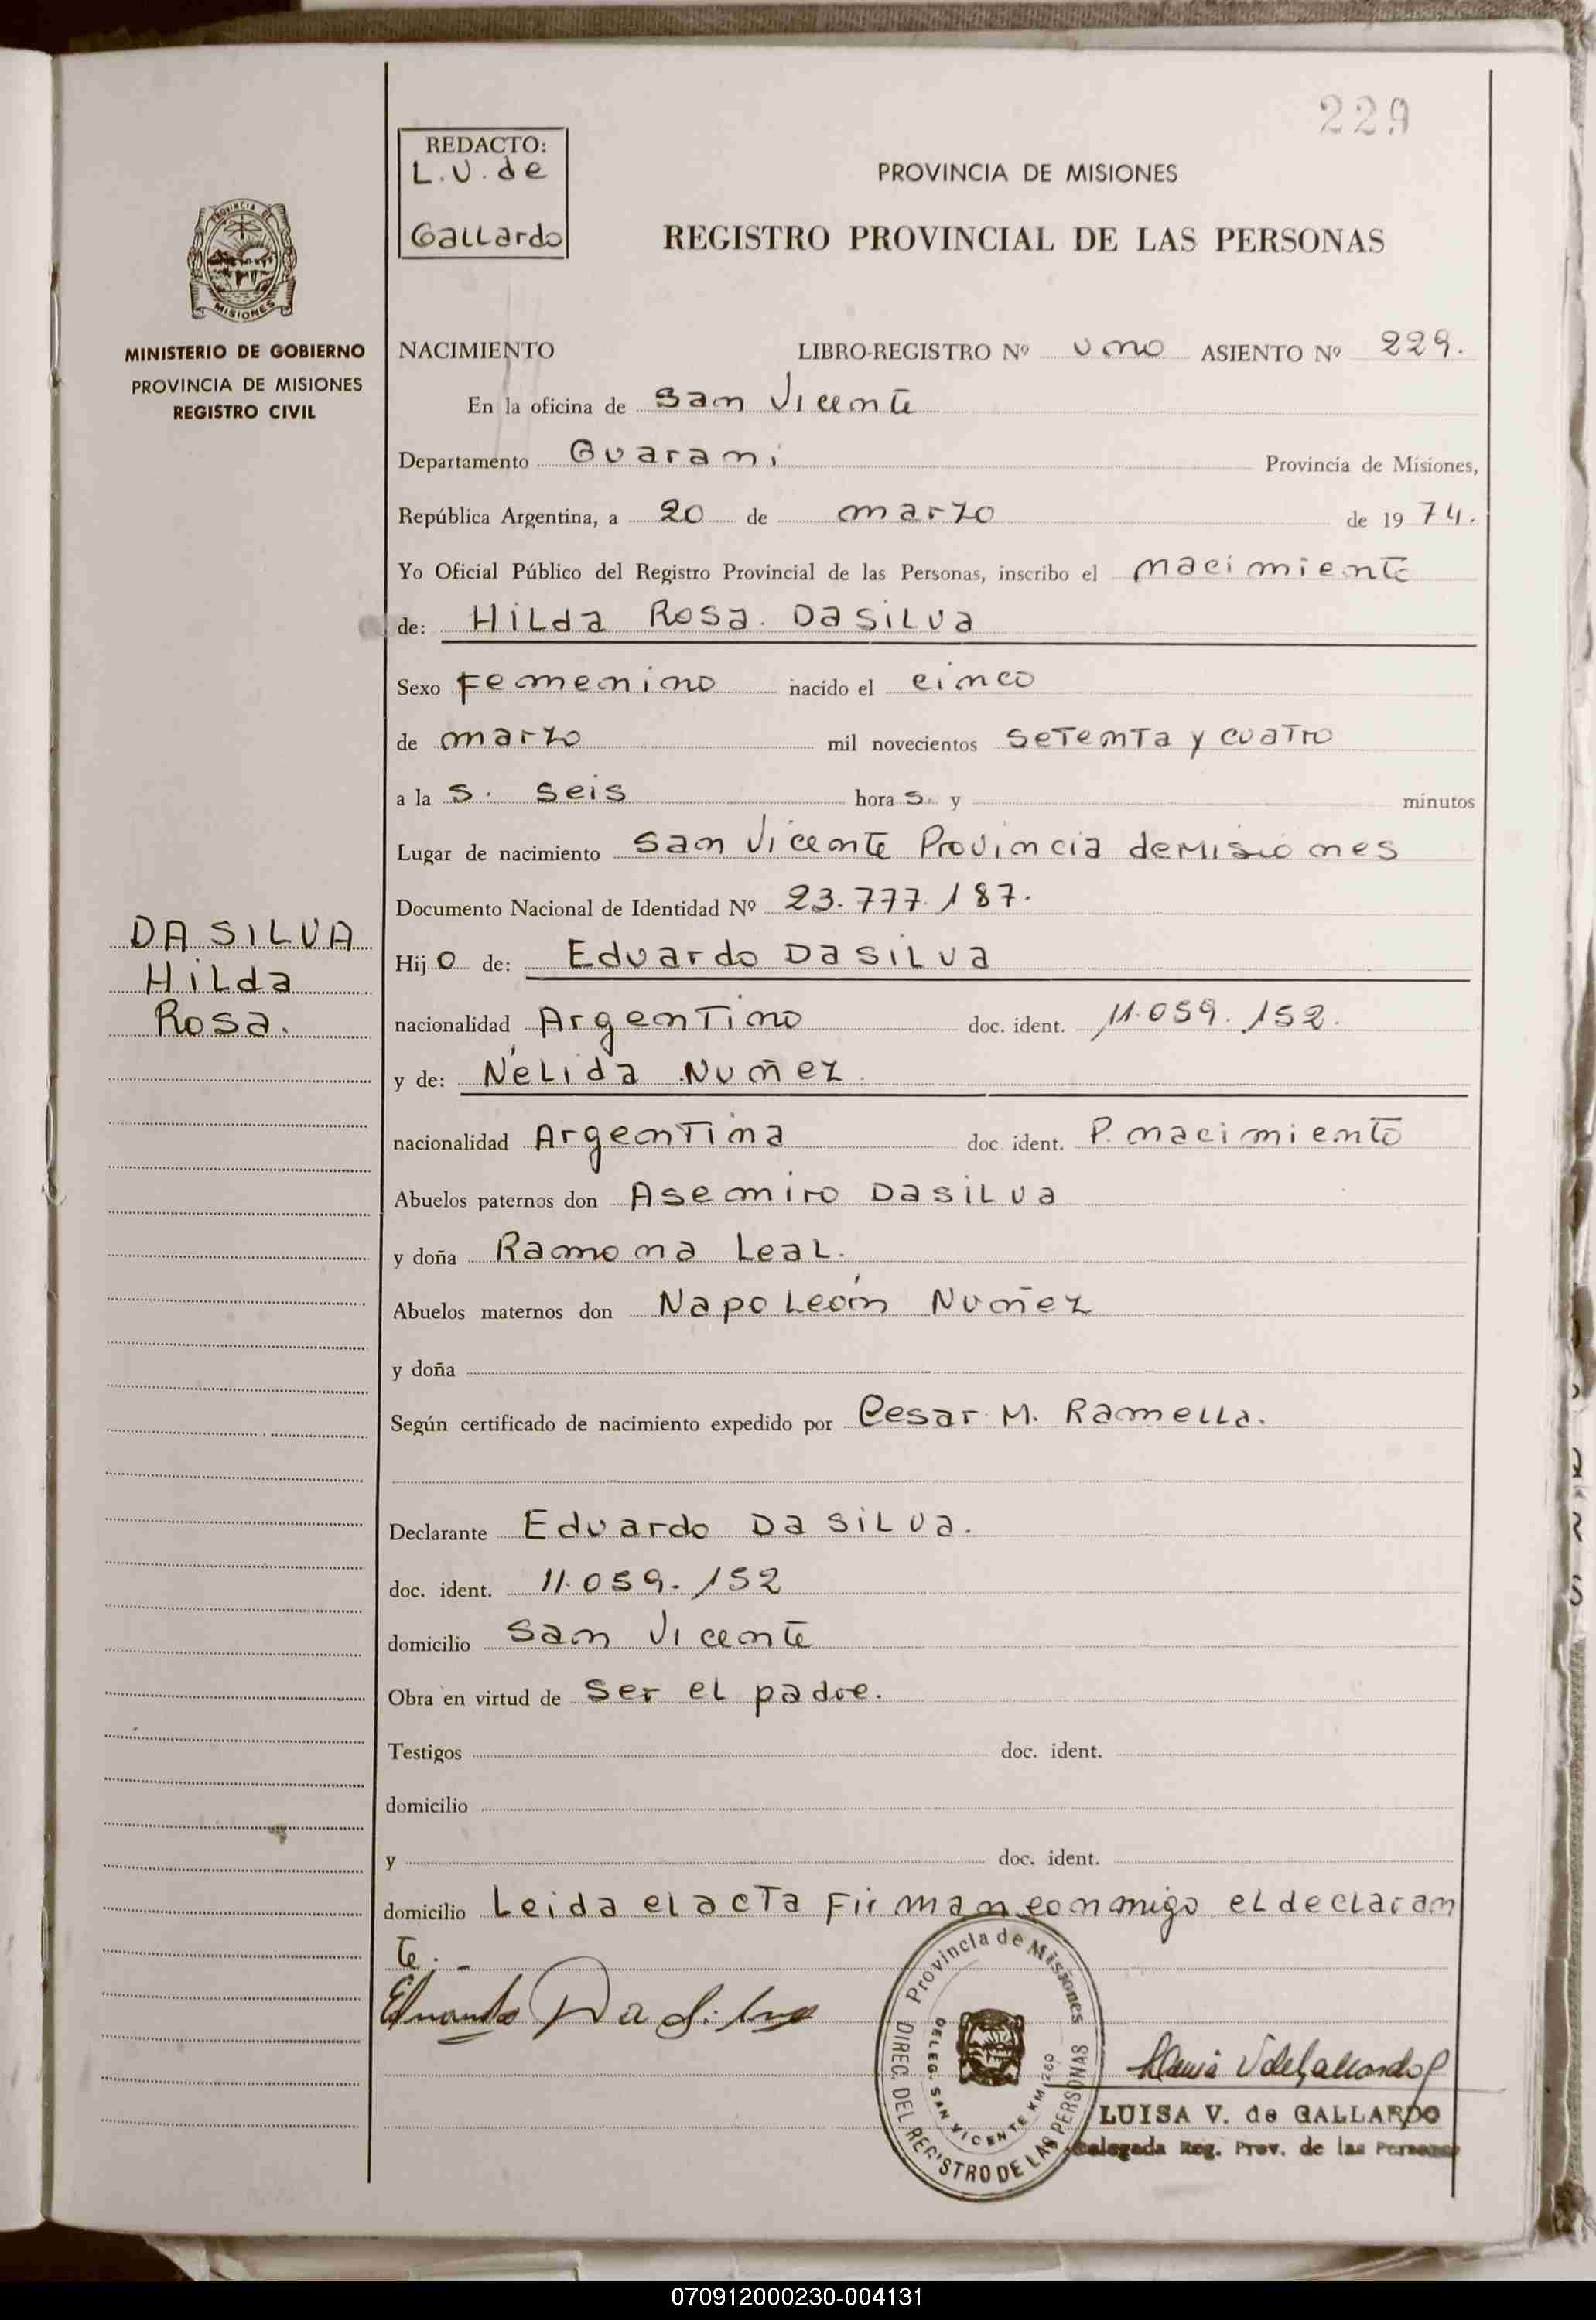 229
REDACTO:
L.V. de
Gallardo
PROVINCIA DE MISIONES
REGISTRO PROVINCIAL DE LAS PERSONAS
PROVINCIA DE
MISIONES
MINISTERIO DE GOBIERNO
PROVINCIA DE MISIONES
REGISTRO CIVIL
NACIMIENTO LIBRO-REGISTRO Nº uno ASIENTO Nº 229.
En la oficina de San Vicente
Departamento Guarani Provincia de Misiones,
República Argentina, a 20 de marzo de 1974.
Yo Oficial Público del Registro Provincial de las Personas, inscribo el nacimiento
de: Hilda Rosa. Da Silva
Sexo Femenino nacido el cinco
de marzo mil novecientos setenta y cuatro
a la s. seis hora s. y minutos
Lugar de nacimiento San Vicente Provincia de Misiones
Documento Nacional de Identidad Nº 23.777.187.
DA SILVA
Hilda
Rosa.
Hijo de: Eduardo Da Silva
nacionalidad Argentino doc. ident. 11.059.152.
y de: Nélida Nuñez
nacionalidad Argentina doc. ident. P. nacimiento
Abuelos paternos don Asemiro Da Silva
y doña Ramona Leal.
Abuelos maternos don Napoleón Nuñez
y doña
Según certificado de nacimiento expedido por Cesar M. Ramella.
Declarante Eduardo Da Silva.
doc. ident. 11.059.152
domicilio San Vicente
Obra en virtud de ser el padre.
Testigos doc. ident.
domicilio
y doc. ident.
domicilio Leida el acta firman conmigo el declaran
te.-
Eduardo Da Silva
Provincia de Misiones
DIREC. DEL REGISTRO DE LAS PERSONAS
DELEG. SAN VICENTE KM 260
Luisa V de Gallardo
LUISA V. de GALLARDO
Delegada Reg. Prov. de las Personas
070912000230-004131